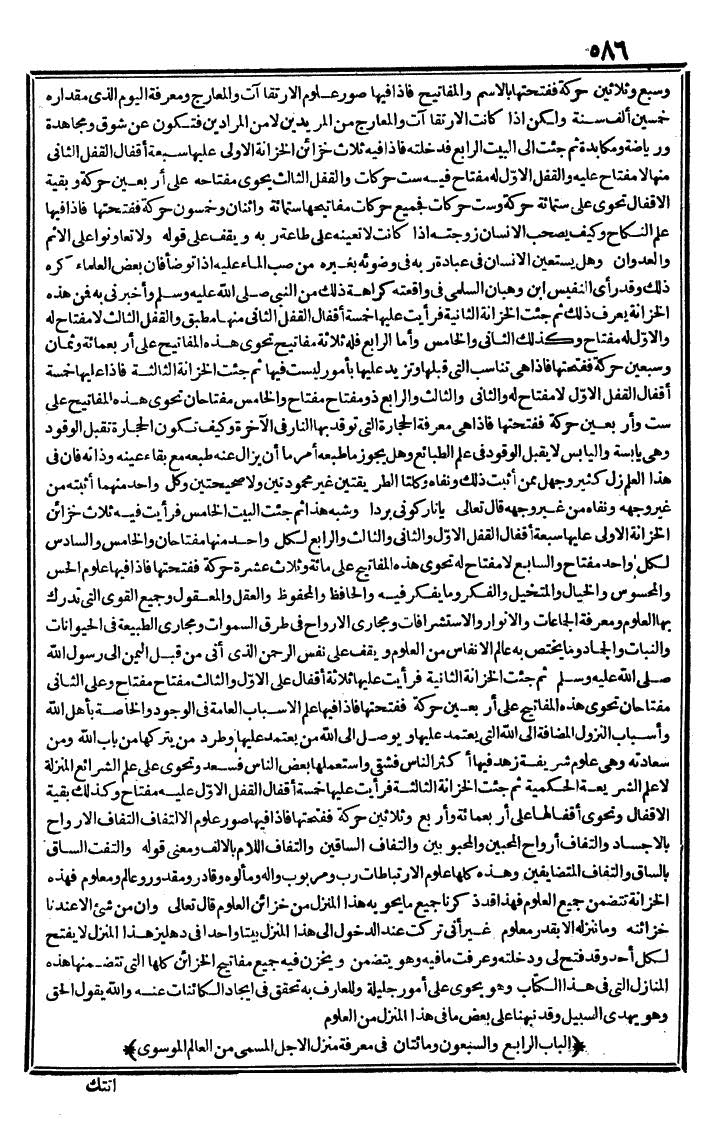 ٥٨٦
وسبع وثلاثين حركة ففتحتها بالاسم والمفاتيح فاذا فيها صور علوم الارتقاآت والمعارج ومعرفة اليوم الذى مقداره
خمسين ألف سنة ولكن اذا كانت الارتقاآت والمعارج من المريدين لا من المرادين فتكون عن شوق ومجاهدة
ورياضة ومكابدة ثم جئت الى البيت الرابع فدخلته فاذا فيه ثلاث خزائن الخزانة الاولى عليها سبعة أقفال القفل الثانى
منها لا مفتاح عليه والقفل الاوّل له مفتاح فيه ست حركات والقفل الثالث يحوى مفتاحه على أربعين حركة وبقية
الاقفال تحوى على ستمائة حركة وست حركات فجميع حركات مفاتيحها ستمائة واثنان وخمسون حركة ففتحتها فاذا فيها
علم النكاح وكيف يصحب الانسان زوجته اذا كانت لا تعينه على طاعة ربه ويقف على قوله ولا تعاونوا على الاثم
والعدوان وهل يستعين الانسان فى عبادة ربه فى وضوئه بغيره من صب الماء عليه اذا توضأ فان بعض العلماء كره
ذلك وقد رأى النفيس ابن وهبان السلمى فى واقعته كراهة ذلك من النبى صلى الله عليه وسلم وأخبرنى به فمن هذه
الخزانة يعرف ذلك ثم جئت الخزانة الثانية فرأيت عليها خمسة أقفال القفل الثانى منها مطبق والقفل الثالث لا مفتاح له
والاوّل له مفتاح وكذلك الثانى والخامس وأما الرابع فله ثلاثة مفاتيح تحوى هذه المفاتيح على أربعمائة وثمان
وسبعين حركة ففتحتها فاذا هى تناسب التى قبلها وتزيد عليها بأمور ليست فيها ثم جئت الخزانة الثالثة فاذا عليها خمسة
أقفال القفل الاوّل لا مفتاح له والثانى والثالث والرابع ذو مفتاح مفتاح والخامس مفتاحان تحوى هذه المفاتيح على
ست وأربعين حركة ففتحتها فاذا هى معرفة الحجارة التى توقد بها النار فى الآخرة وكيف تكون الحجارة تقبل الوقود
وهى يابسة واليابس لا يقبل الوقود فى علم الطبائع وهل يجوز ما طبعه أمر ما أن يزال عنه طبعه مع بقاء عينه وذاته فان فى
هذا العلم زل كثير وجهل ممن أثبت ذلك ونفاه وكلتا الطريقتين غير محمودتين ولا صحيحتين وكل واحد منهما أثبته من
غير وجهه ونفاه من غير وجهه قال تعالى يا نار كونى بردا وشبه هذا ثم جئت البيت الخامس فرأيت فيه ثلاث خزائن
الخزانة الاولى عليها سبعة أقفال القفل الاوّل والثانى والثالث والرابع لكل واحد منها مفتاحان والخامس والسادس
لكل واحد مفتاح والسابع لا مفتاح له تحوى هذه المفاتيح على مائة وثلاث عشرة حركة ففتحتها فاذا فيها علوم الحس
والمحسوس والخيال والمتخيل والفكر وما يفكر فيه والحافظ والمحفوظ والعقل والمعقول وجميع القوى التى تدرك
بها العلوم ومعرفة الجماعات والانوار والاستشرافات ومجارى الارواح فى طرق السموات ومجارى الطبيعة فى الحيوانات
والنبات والجماد وما يختص به عالم الانفاس من العلوم ويقف على نفس الرحمن الذى أتى من قبل اليمن الى رسول الله
صلى الله عليه وسلم ثم جئت الخزانة الثانية فرأيت عليها ثلاثة أقفال على الاوّل والثالث مفتاح مفتاح وعلى الثانى
مفتاحان تحوى هذه المفاتيح على أربعين حركة ففتحتها فاذا فيها علم الاسباب العامة فى الوجود والخاصة بأهل الله
وأسباب النزول المضافة الى الله التى يعتمد عليها ويوصل الى الله من يعتمد عليها وطرد من يتركها من باب الله ومن
سعادته وهى علوم شريفة زهد فيها أكثر الناس فشقى واستعملها بعض الناس فسعد وتحوى على علم الشرائع المنزلة
لا علم الشريعة الحكمية ثم جئت الخزانة الثالثة فرأيت عليها خمسة أقفال القفل الاوّل عليه مفتاح وكذلك بقية
الاقفال وتحوى أقفالها على أربعمائة وأربع وثلاثين حركة ففتحتها فاذا فيها صور علوم الالتفاف التفاف الارواح
بالاجساد والتفاف أرواح المحبين والمحبوبين والتفاف الساقين والتفاف اللام بالالف ومعنى قوله والتفت الساق
بالساق والتفاف المتضايفين وهذه كلها علوم الارتباطات رب ومربوب واله ومألوه وقادر ومقدور وعالم ومعلوم فهذه
الخزانة تتضمن جميع العلوم فهذا قد ذكرنا جميع ما يحويه هذا المنزل من خزائن العلوم قال تعالى وان من شئ الا عندنا
خزائنه وما ننزله الا بقدر معلوم غير أنى تركت عند الدخول الى هذا المنزل بيتا واحدا فى دهليز هذا المنزل لا يفتح
لكل أحد وقد فتح لى ودخلته وعرفت ما فيه وهو يتضمن ويخزن فيه جميع مفاتيح الخزائن كلها التى تتضمنها هذه
المنازل التى فى هذا الكتاب وهو يحوى على أمور جليلة وللعارف به تحقق فى ايجاد الكائنات عنه والله يقول الحق
وهو يهدى السبيل وقد نبهنا على بعض ما فى هذا المنزل من العلوم
﴿الباب الرابع والسبعون ومائتان فى معرفة منزل الاجل المسمى من العالم الموسوى﴾
اتتك